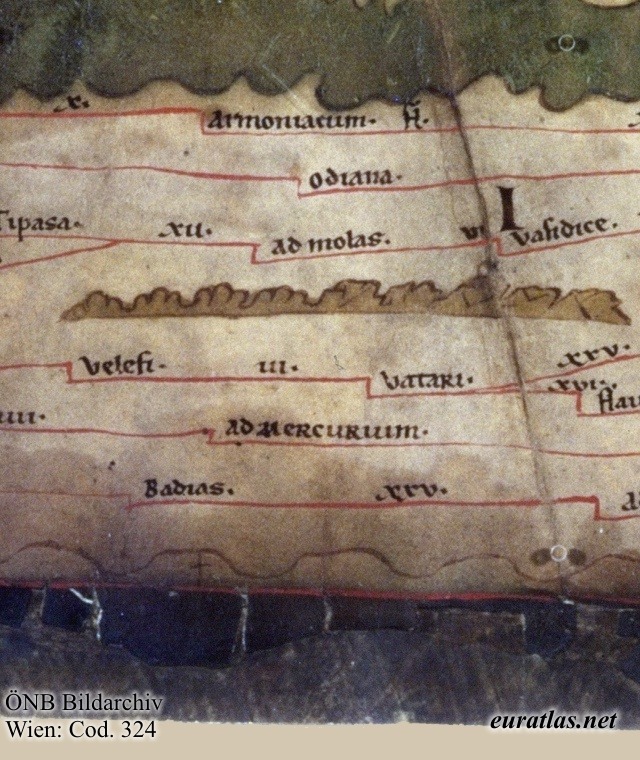 x.
armoniacum. fl.
odiana.
Tipasa. xii. ad molas. vi
I
vasidice.
velesi. iii. vatari. xxv.
xvi.
flau
iiii. ad mercurium.
Badias. xxv. ad
ÖNB Bildarchiv
Wien: Cod. 324
euratlas.net